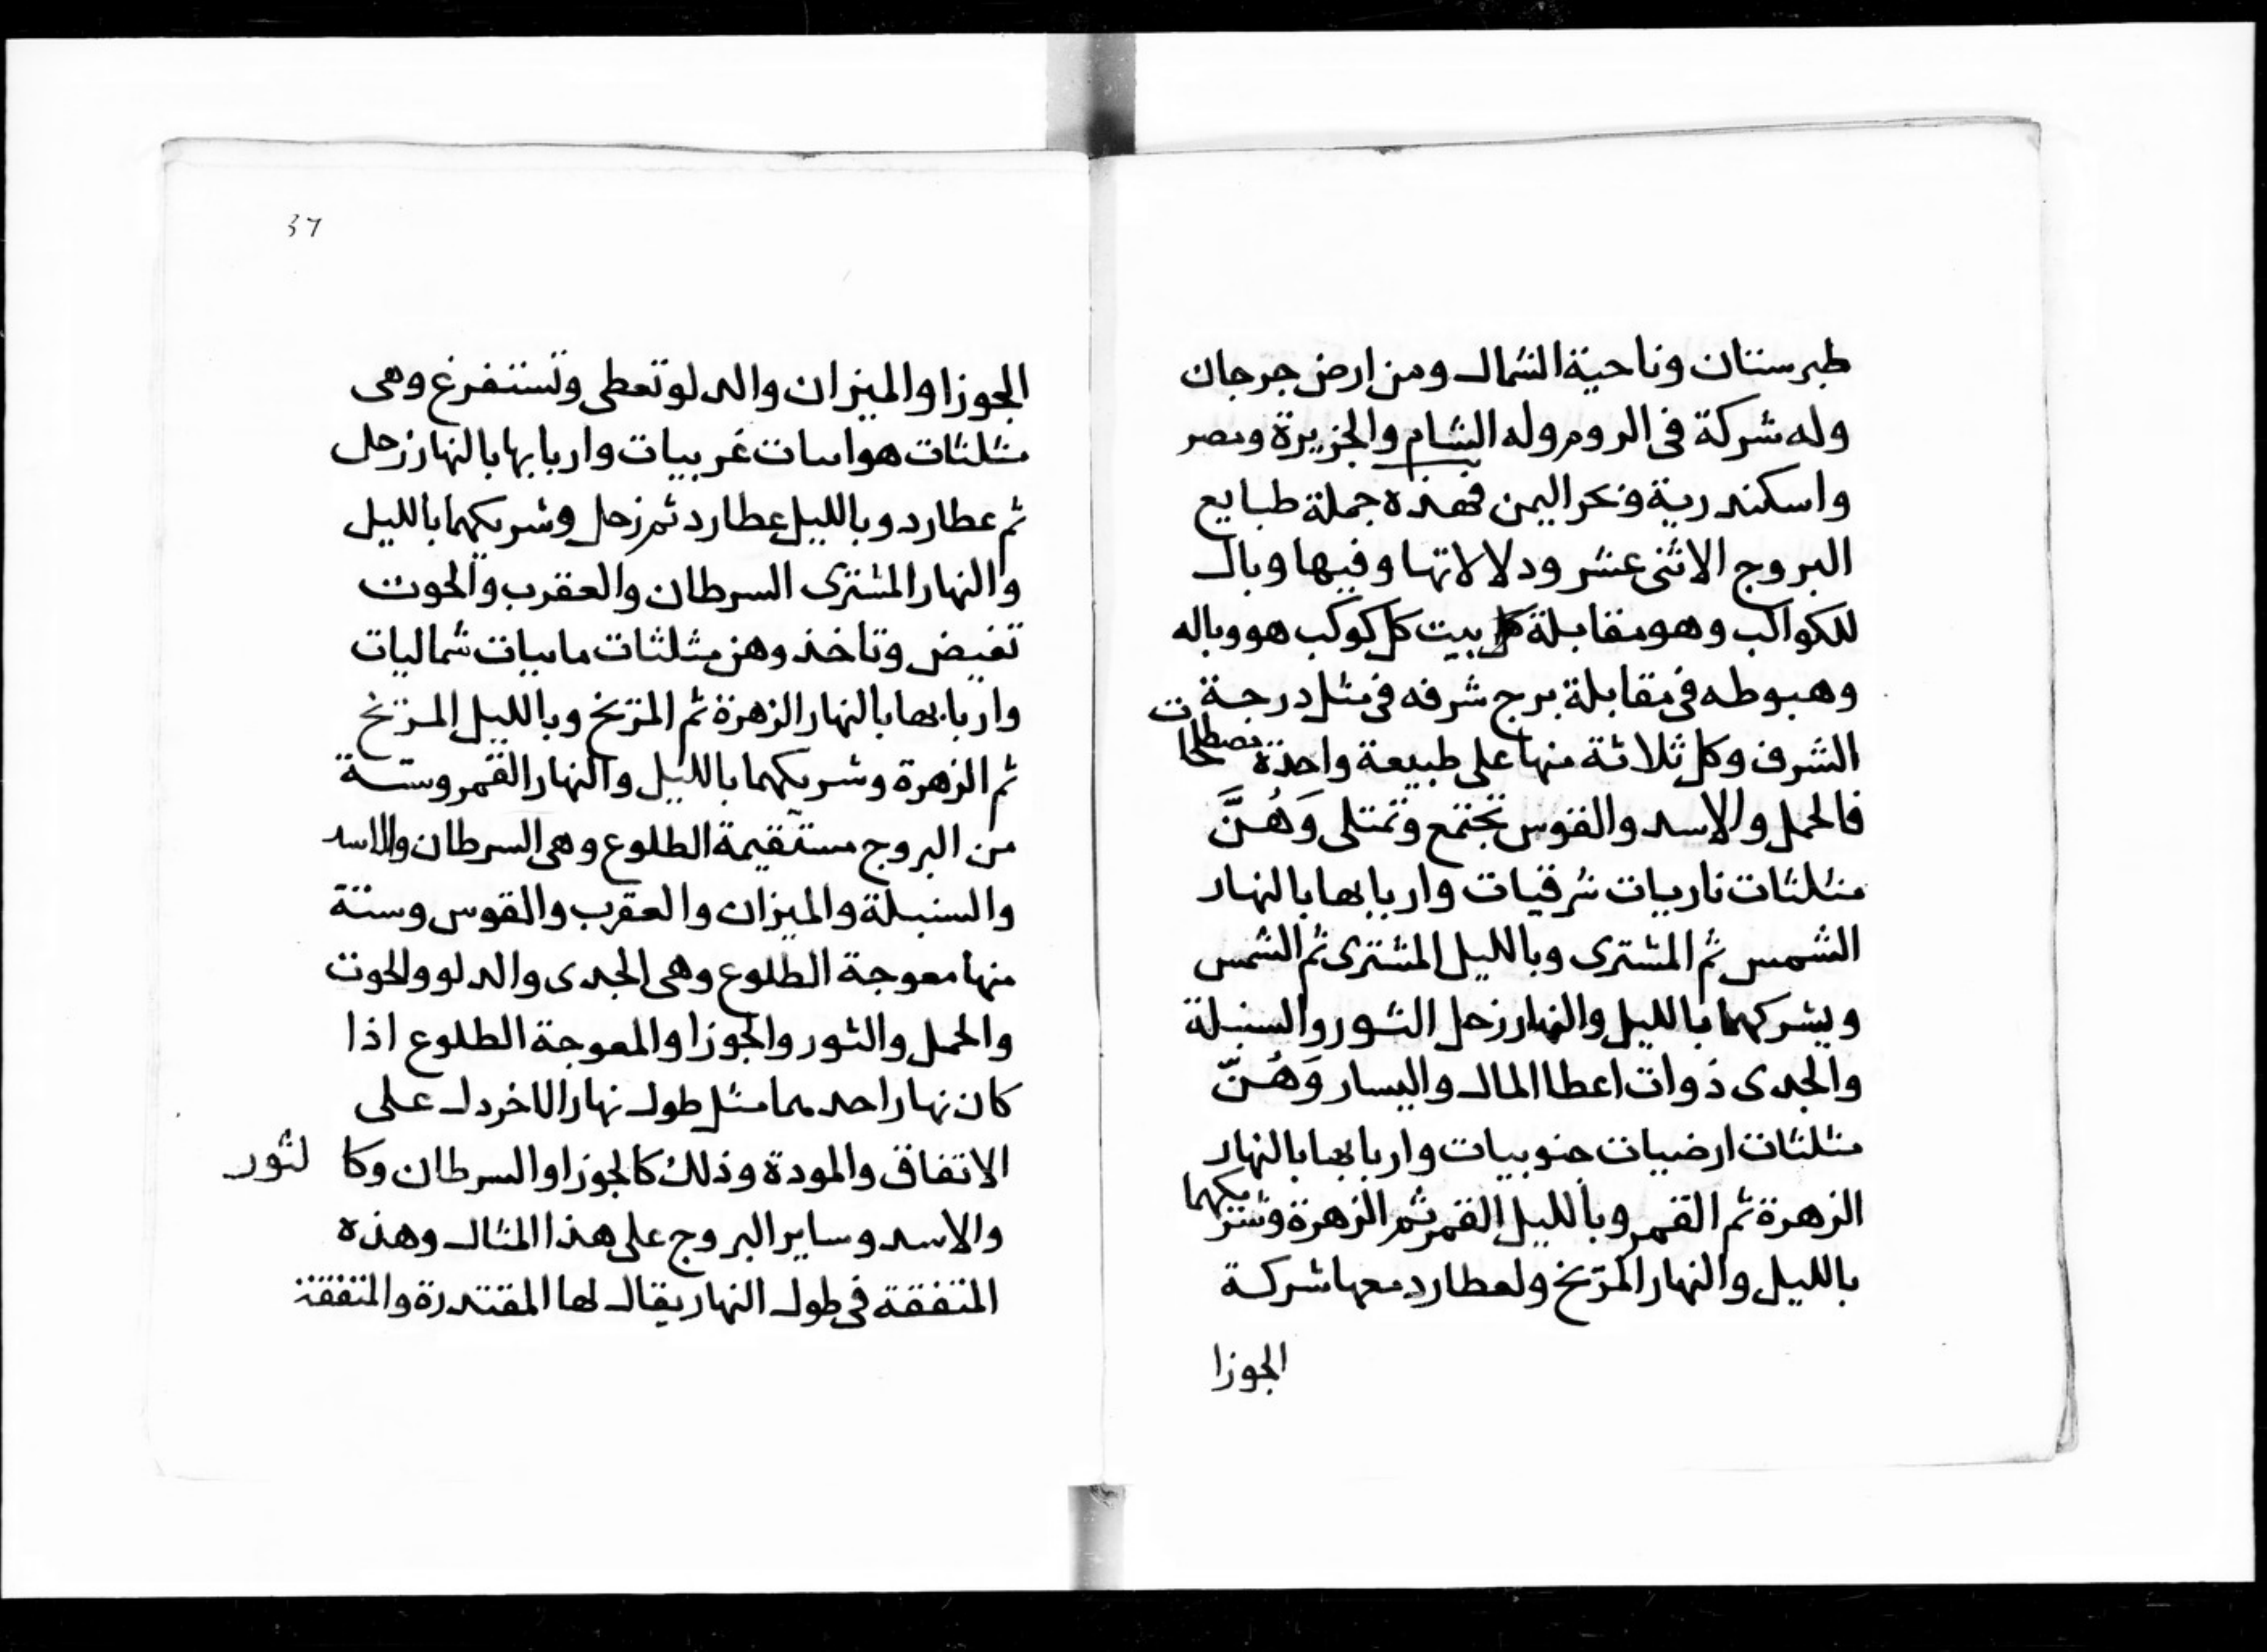 طبرستان وناحية الشمال ومن ارض جرجان
وله شركة فى الروم وله الشام والجزيرة ومصر
واسكندرية ونحر اليمن فهذه جملة طبايع
البروج الاثنى عشر ودلالاتها وفيها وبال
للكواكب وهو مقابلة بيت كل كوكب هو وباله
وهبوطه فى مقابلة برج شرفه فى مثل درجة
الشرف وكل ثلاثة منها على طبيعة واحدة مصطلحات
فالحمل والاسد والقوس تجتمع وتمتلى وَهُنَّ
مثلثات ناريات شرقيات واربابها بالنهار
الشمس ثم المشترى وبالليل المشترى ثم الشمس
ويشركهما بالليل والنهار زحل الثور والسنبلة
والجدى ذوات اعطا المال واليسار وَهُنّ
مثلثات ارضيات جنوبيات واربابها بالنهار
الزهرة ثم القمر وبالليل القمر ثم الزهرة وشريكهما
بالليل والنهار المريخ ولعطارد معها شركة
الجوزا
37
الجوزا والميزان والدلو تعطى وتستفرغ وهى
مثلثات هواييات غربيات واربابها بالنهار زحل
ثم عطارد وبالليل عطارد ثم زحل وشريكهما بالليل
والنهار المشترى السرطان والعقرب والحوت
تفيض وتاخذ وهن مثلثات ماييات شماليات
واربابها بالنهار الزهرة ثم المريخ وبالليل المريخ
ثم الزهرة وشريكهما بالليل والنهار القمر وستة
من البروج مستقيمة الطلوع وهى السرطان والاسد
والسنبلة والميزان والعقرب والقوس وستة
منها معوجة الطلوع وهى الجدى والدلو والحوت
والحمل والثور والجوزا والمعوجة الطلوع اذا
كان نهار احدهما مثل طول نهار الاخر دل على
الاتفاق والمودة وذلك كالجوزا والسرطان وكا لثور
والاسد وساير البروج على هذا المثال وهذه
المتفقة فى طول النهار يقال لها المقتدرة والمتفقة